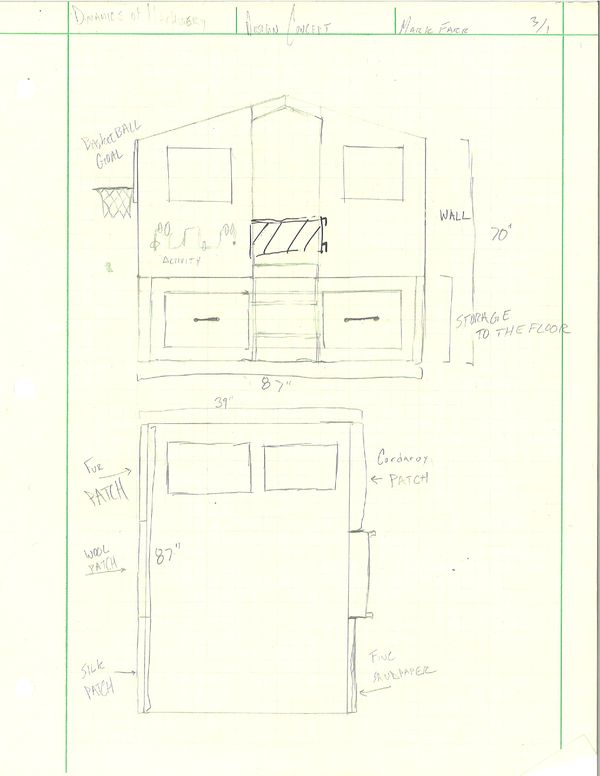 DYNAMICS OF MACHINERY
DESIGN CONCEPT
MARK FARR
3/1
BASKETBALL
GOAL
WALL
70"
ACTIVITY
STORAGE
TO THE FLOOR
87"
39"
FUR
PATCH
Corduroy
PATCH
WOOL
PATCH
87"
SILK
PATCH
FINE
SANDPAPER